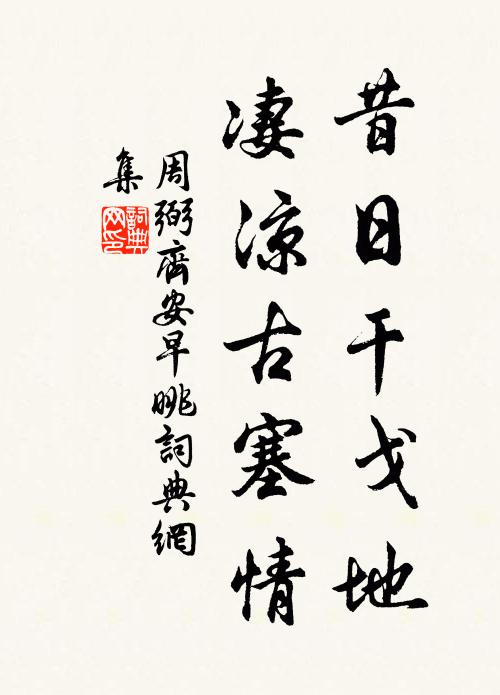 昔日干戈地
凄涼古塞情
周弼齊安早眺詞典網
集
詞典网印